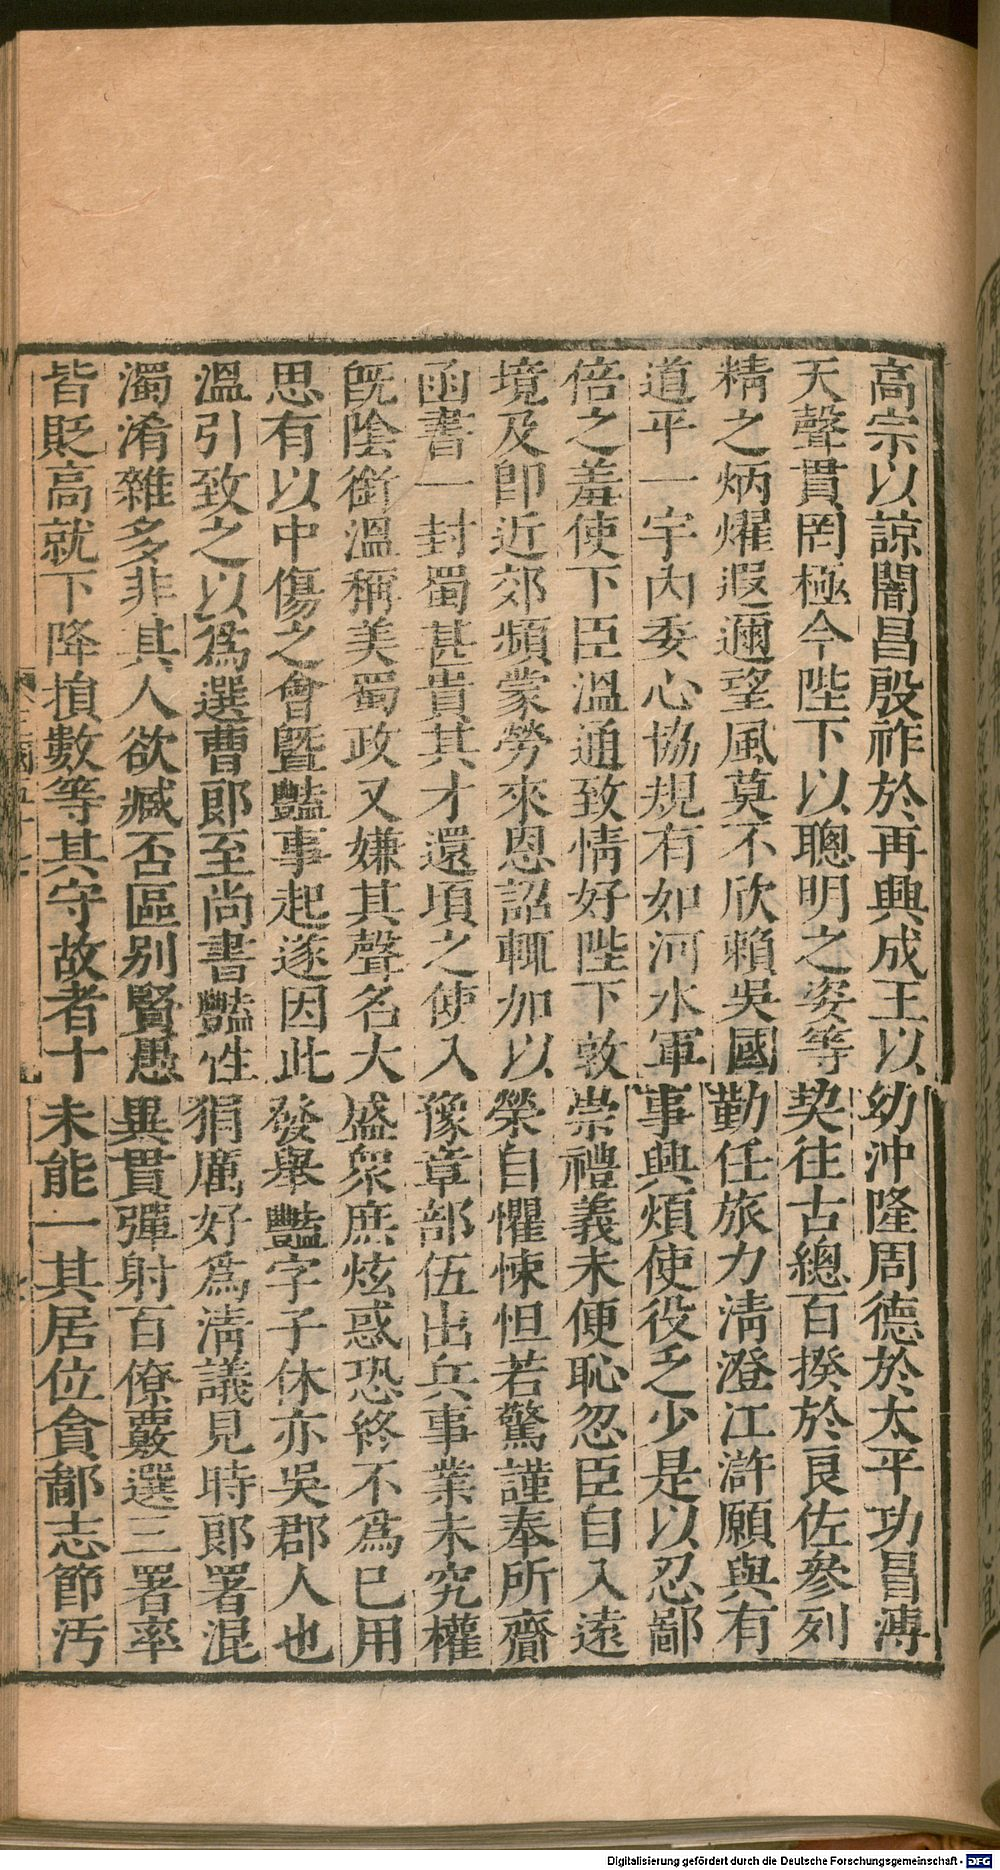 高宗以諒闇昌殷祚於再興成王以幼沖隆周德於太平功昌溥
天聲貫罔極今陛下以聰明之姿等契往古總百揆於良佐參列
精之炳燿遐邇望風莫不欣賴吳國勤任旅力清澄江滸願與有
道平一宇內委心協規有如河水軍事興煩使役乏少是以忍鄙
倍之羞使下臣溫通致情好陛下敦崇禮義未便恥忽臣自入遠
境及卽近郊頻蒙勞來恩詔輒加以榮自懼悚怛若驚謹奉所齎
函書一封蜀甚貴其才還頃之使入豫章部伍出兵事業未究權
旣陰銜溫稱美蜀政又嫌其聲名大盛衆庶炫惑恐終不爲已用
思有以中傷之會曁豔事起遂因此發舉豔字子休亦吳郡人也
溫引致之以爲選曹郞至尚書豔性狷厲好爲淸議見時郞署混
濁淆雜多非其人欲臧否區別賢愚異貫彈射百僚覈選三署率
皆貶高就下降損數等其守故者十未能一其居位貪鄙志節汚
Digitalisierung gefördert durch die Deutsche Forschungsgemeinschaft - DFG